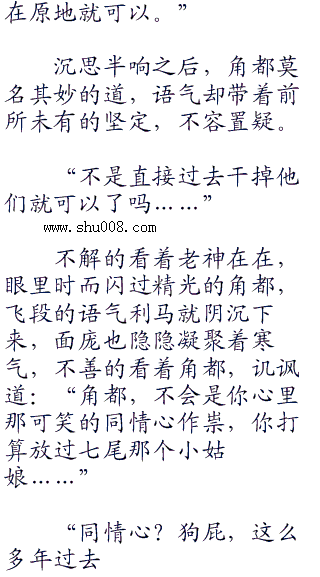 在原地就可以。”
沉思半响之后，角都莫
名其妙的道，语气却带着前
所未有的坚定，不容置疑。
“不是直接过去干掉他
们就可以了吗……”
www.shu008.com
不解的看着老神在在，
眼里时而闪过精光的角都，
飞段的语气利马就阴沉下
来，面庞也隐隐凝聚着寒
气，不善的看着角都，讥讽
道：“角都，不会是你心里
那可笑的同情心作祟，你打
算放过七尾那个小姑
娘……”
“同情心？狗屁，这么
多年过去